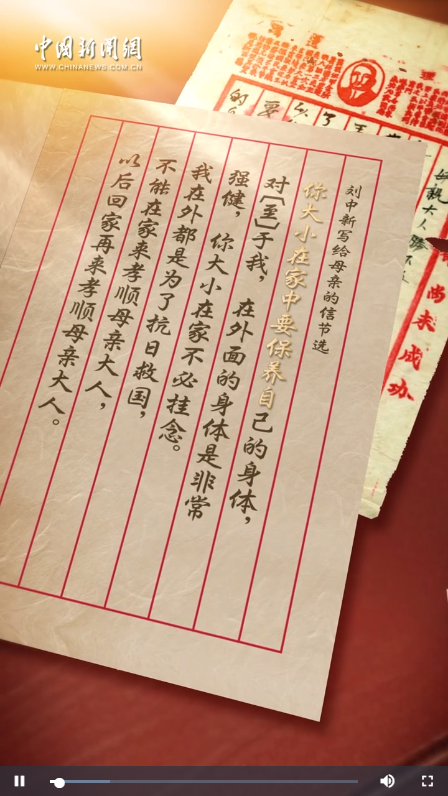 中國新聞網
WWW.CHINANEWS.COM.CN
刘中新写给母亲的信节选
你大小在家中要保养自己的身体，
对〔至〕于我，在外面的身体是非常
强健，你大小在家不必挂念。
我在外都是为了抗日救国，
不能在家来孝顺母亲大人，
以后回家再来孝顺母亲大人。
尚未成功